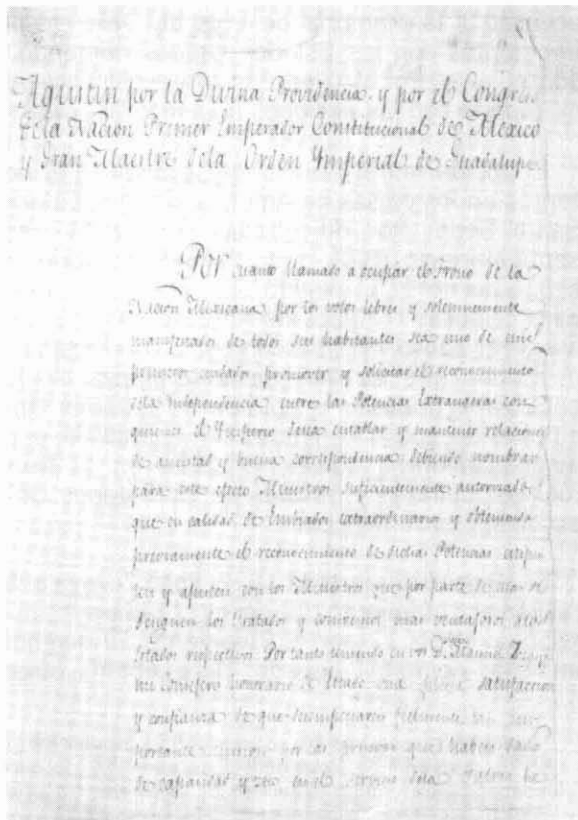 Agustin por la Divina Providencia, y por el Congreso
de la Nacion Primer Emperador Constitucional de Mexico
y Gran Maestre dela Orden Ymperial de Guadalupe.
Por cuanto llamado a ocupar el trono de la
Nacion Mexicana por los votos libres y solemnemente
manifestados de todos sus habitantes sea uno de mis
primeros cuidados promover y solicitar el reconocimiento
dela Independencia entre las Potencias Extrangeras con
quienes el Ymperio desea entablar y mantener relaciones
de amistad y buena correspondencia: debiendo nombrar
para este efecto Ministros suficientemente autorizados
que en calidad de Embiados extraordinarios y obteniendo
previamente el reconocimiento de dichas Potencias estipu
len y ajusten con los Ministros que por parte de ellas se
designen los Tratados y convenios mas ventajosos a los
Estados respectivos. Por tanto teniendo en vos D.
mi Consejero honorario de Estado satisfaccion
y confianza de que desempeñareis fielmente tan im
portante por las pruebas que habeis dado
de capacidad y zelo en el servicio dela Patria he